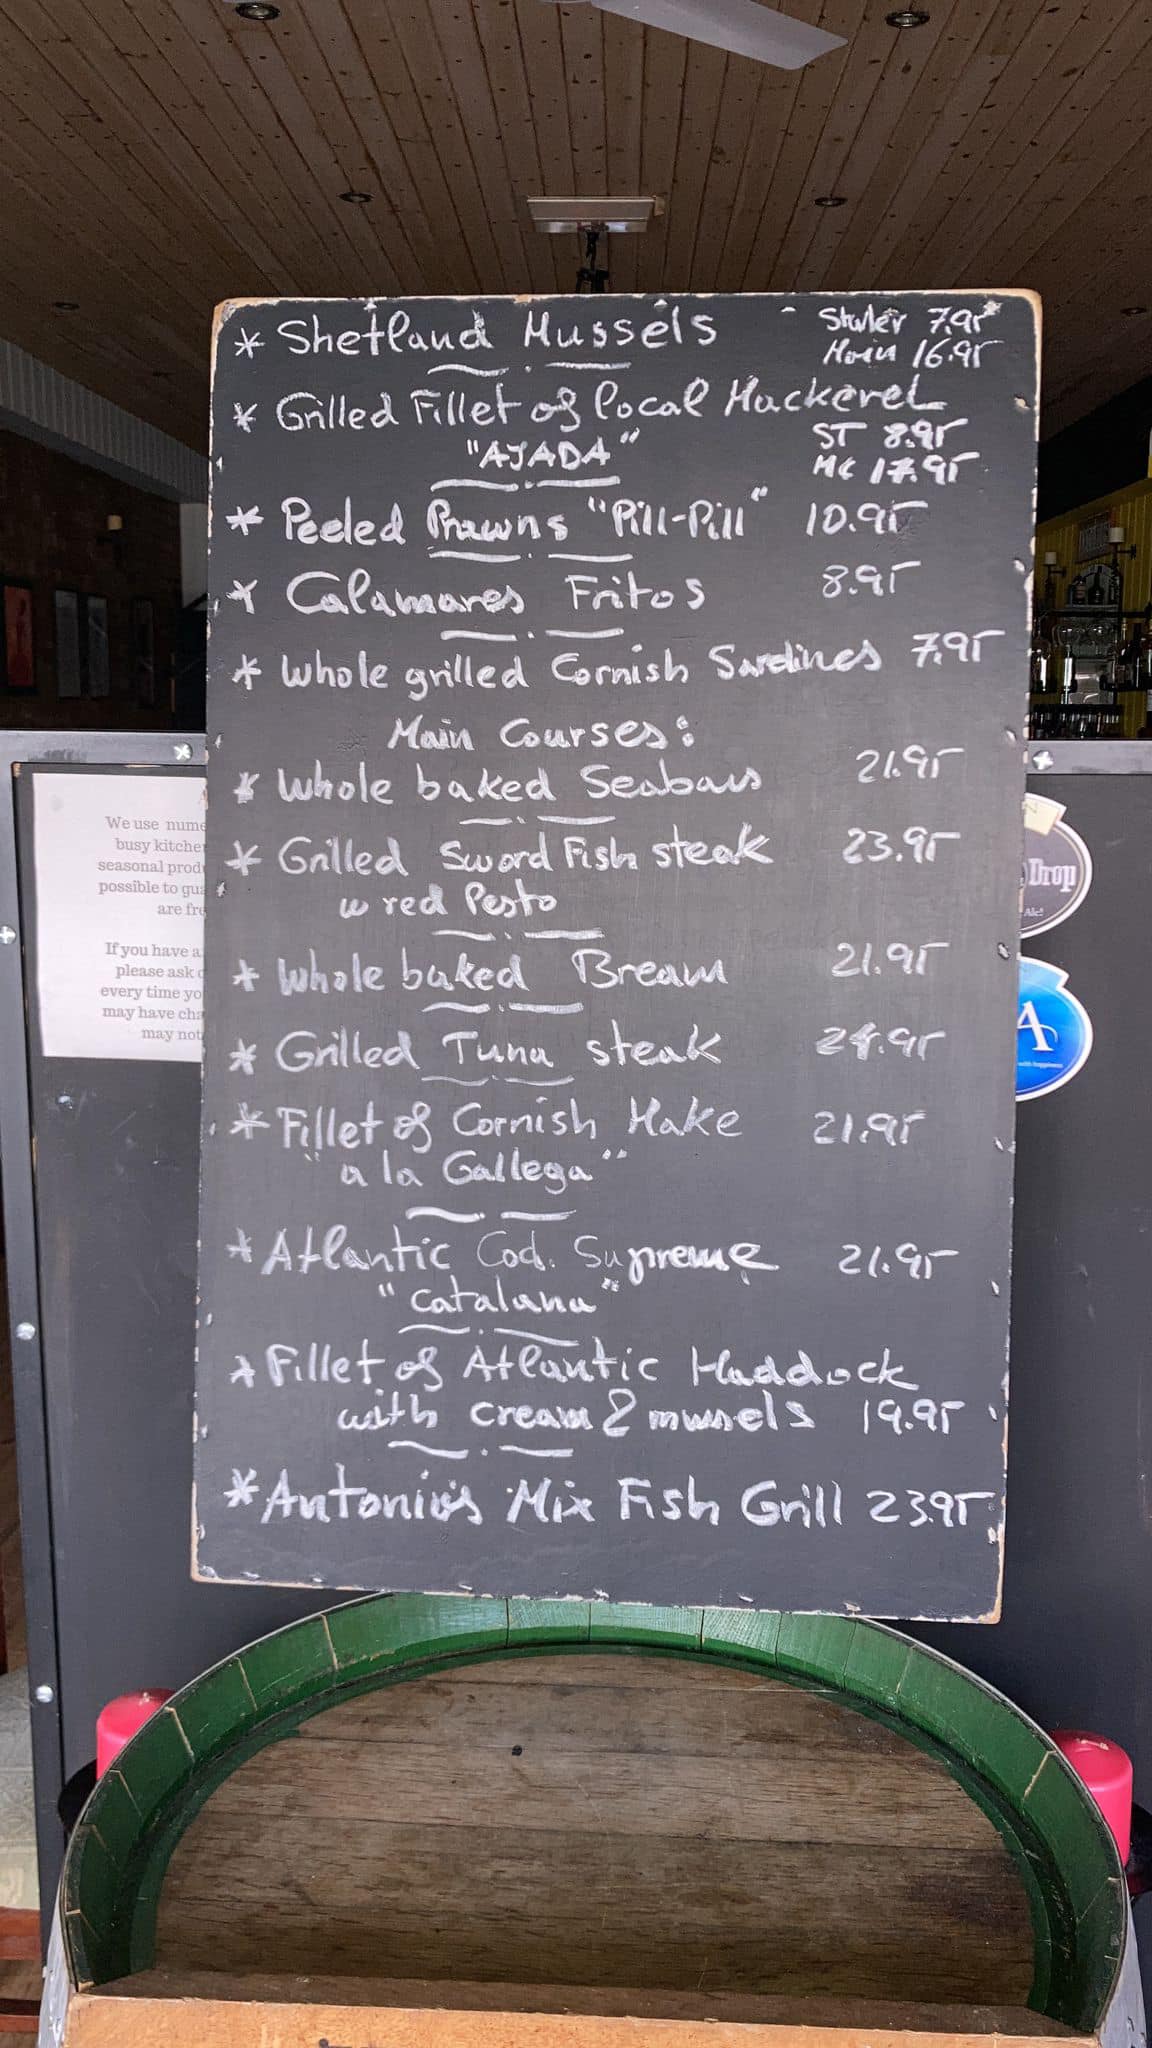 * Shetland Mussels - Starter 7.95
Main 16.95
* Grilled Fillet of local Mackerel
"AJADA" ST 8.95
MC 17.95
* Peeled Prawns "Pill-Pill" 10.95
* Calamares Fritos 8.95
* Whole grilled Cornish Sardines 7.95
Main Courses:
* Whole baked Seabass 21.95
* Grilled Sword Fish steak 23.95
w red Pesto
* Whole baked Bream 21.95
* Grilled Tuna steak
* Fillet of Cornish Hake 21.95
"a la Gallega"
* Atlantic Cod. Supreme 21.95
"Catalana"
* Fillet of Atlantic Haddock
with cream & mussels 19.95
* Antonio's Mix Fish Grill 23.95
We use nume
busy kitche
seasonal prod
possible to gua
are fre
If you have a
please ask
every time yo
may have cha
may not
Drop
Ale!
A